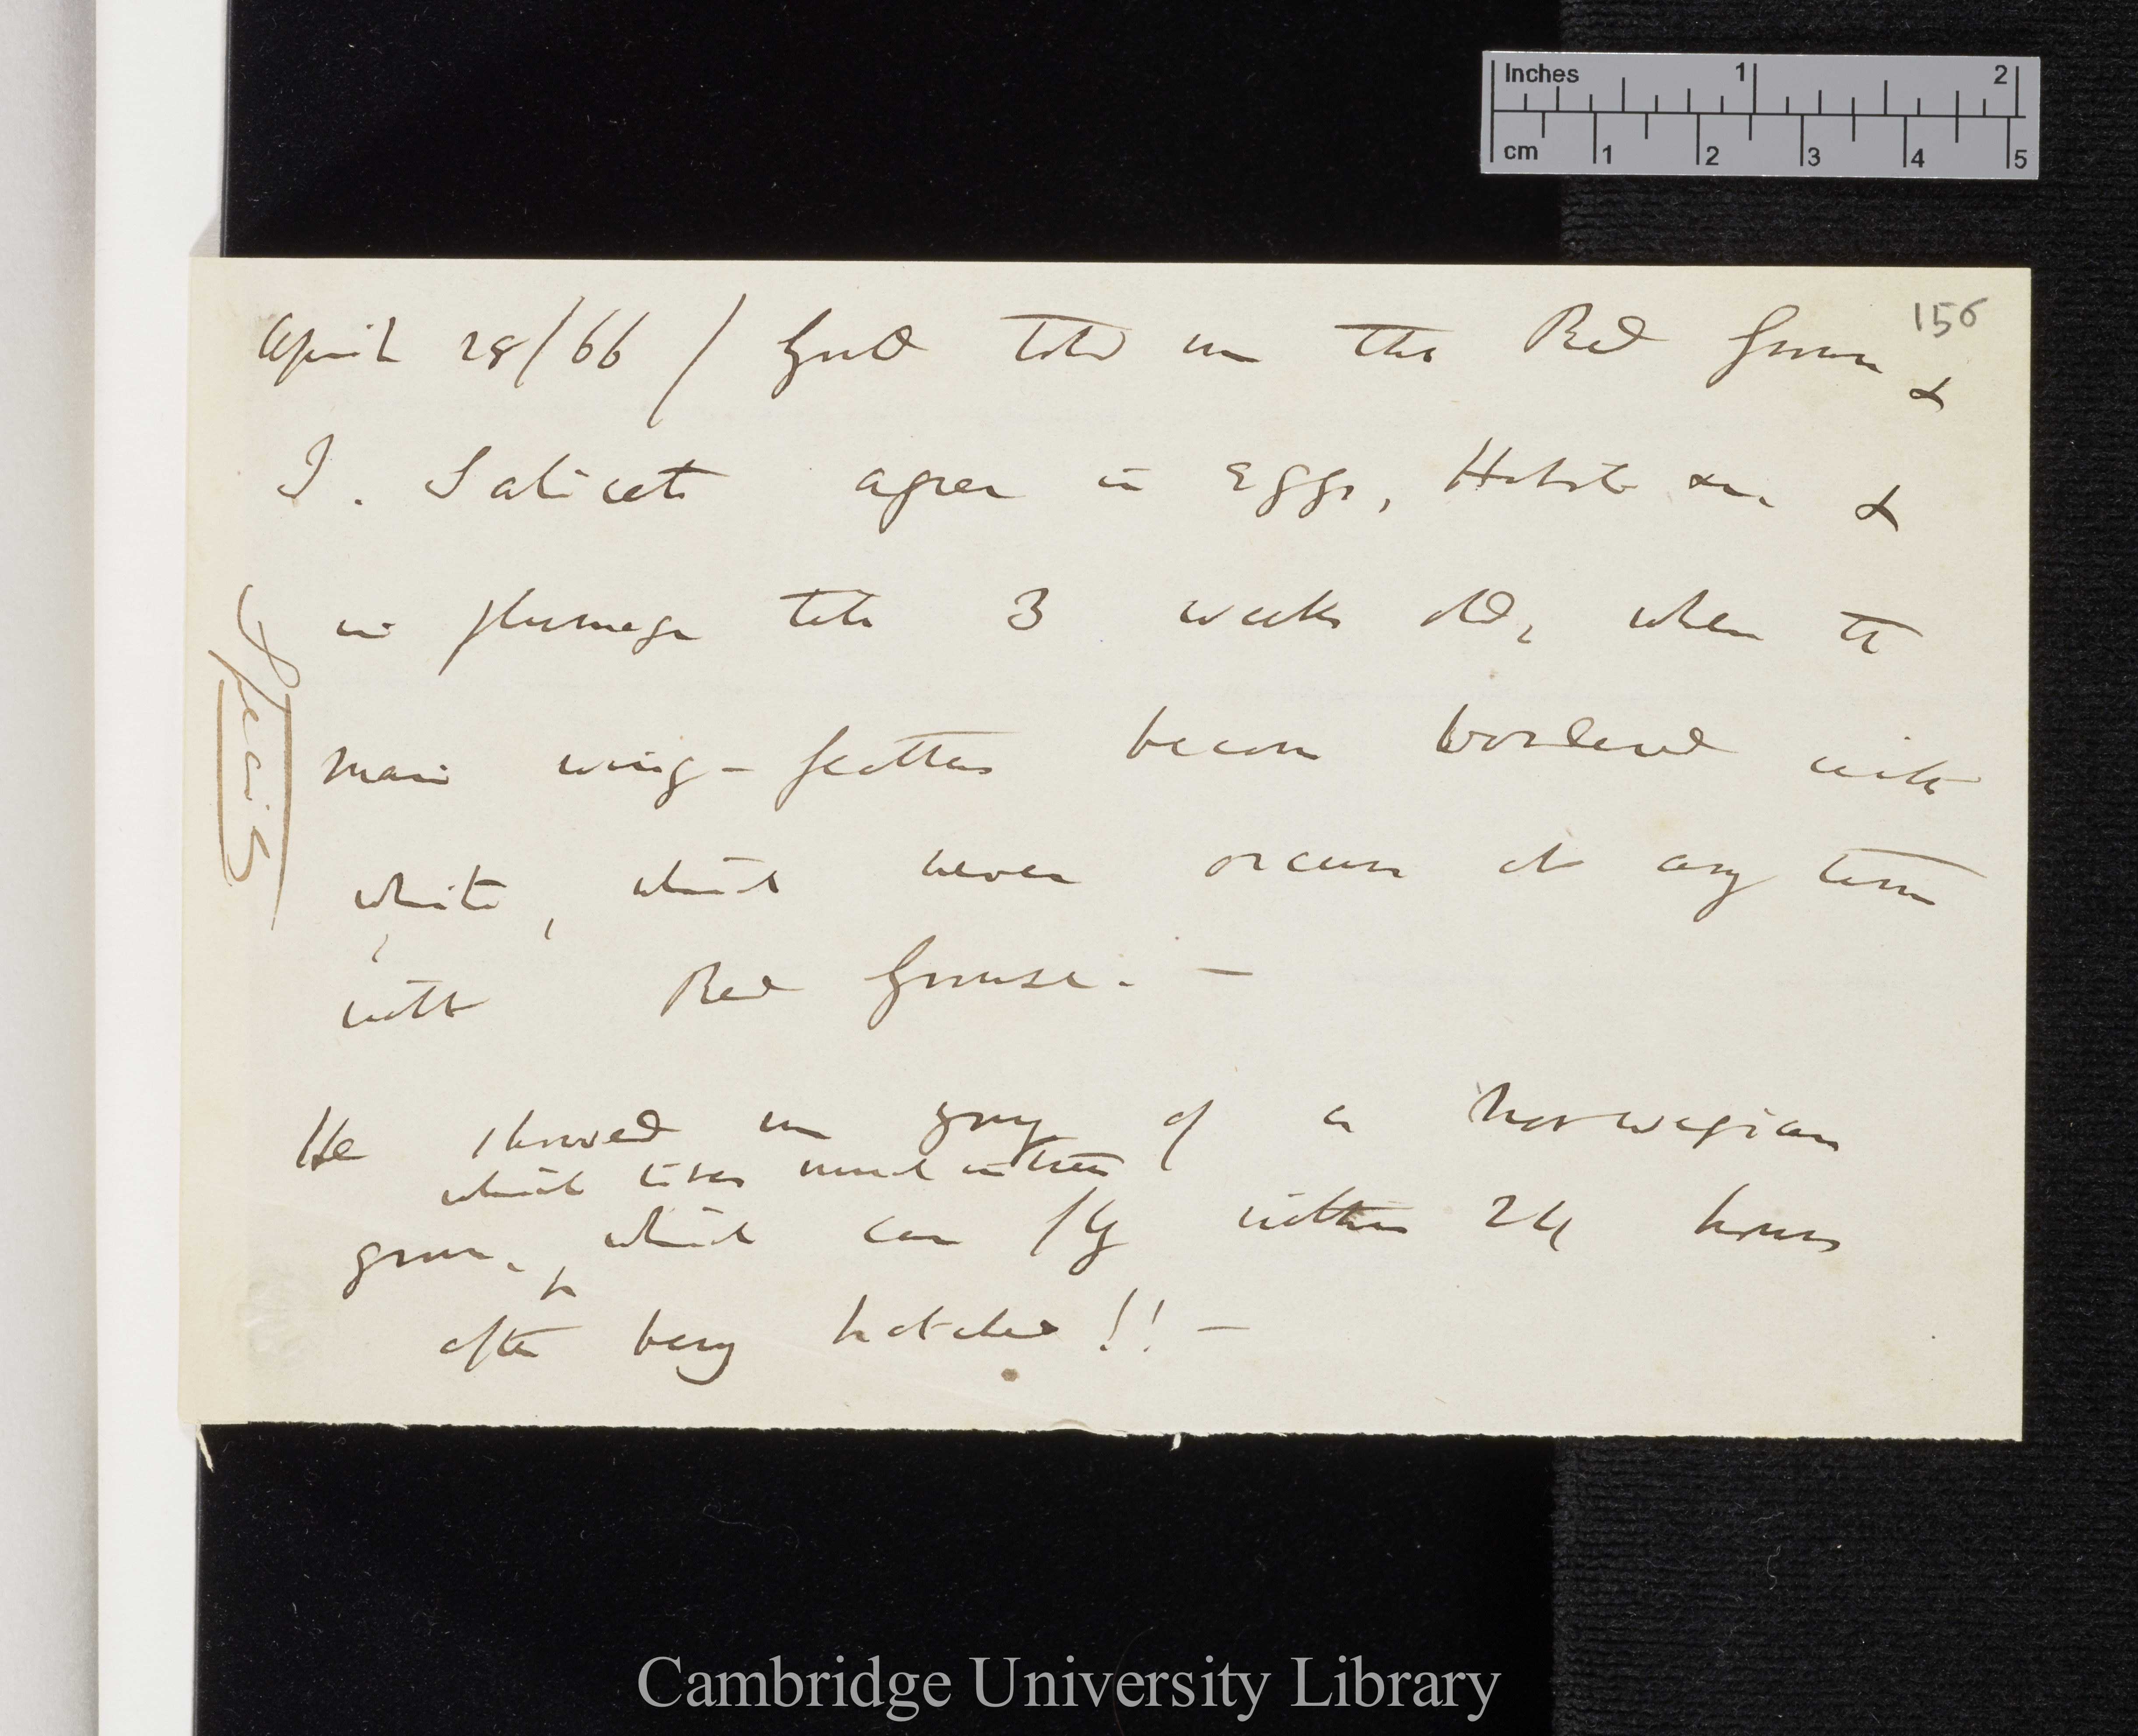 Inches 1 2
cm 1 2 3 4 5
156
April 28/66 / Gould told me the Red Grouse &
T. Saliceti agree in eggs, Habits &c. &
in plumage till 3 weeks old, when the
Species
main wing-feathers become bordered with
white, which never occurs at any time
with Red Grouse. —
He showed me young of a Norwegian
which lives much in trees
grouse, which can fly within 24 hours
after being hatched !! —
Cambridge University Library